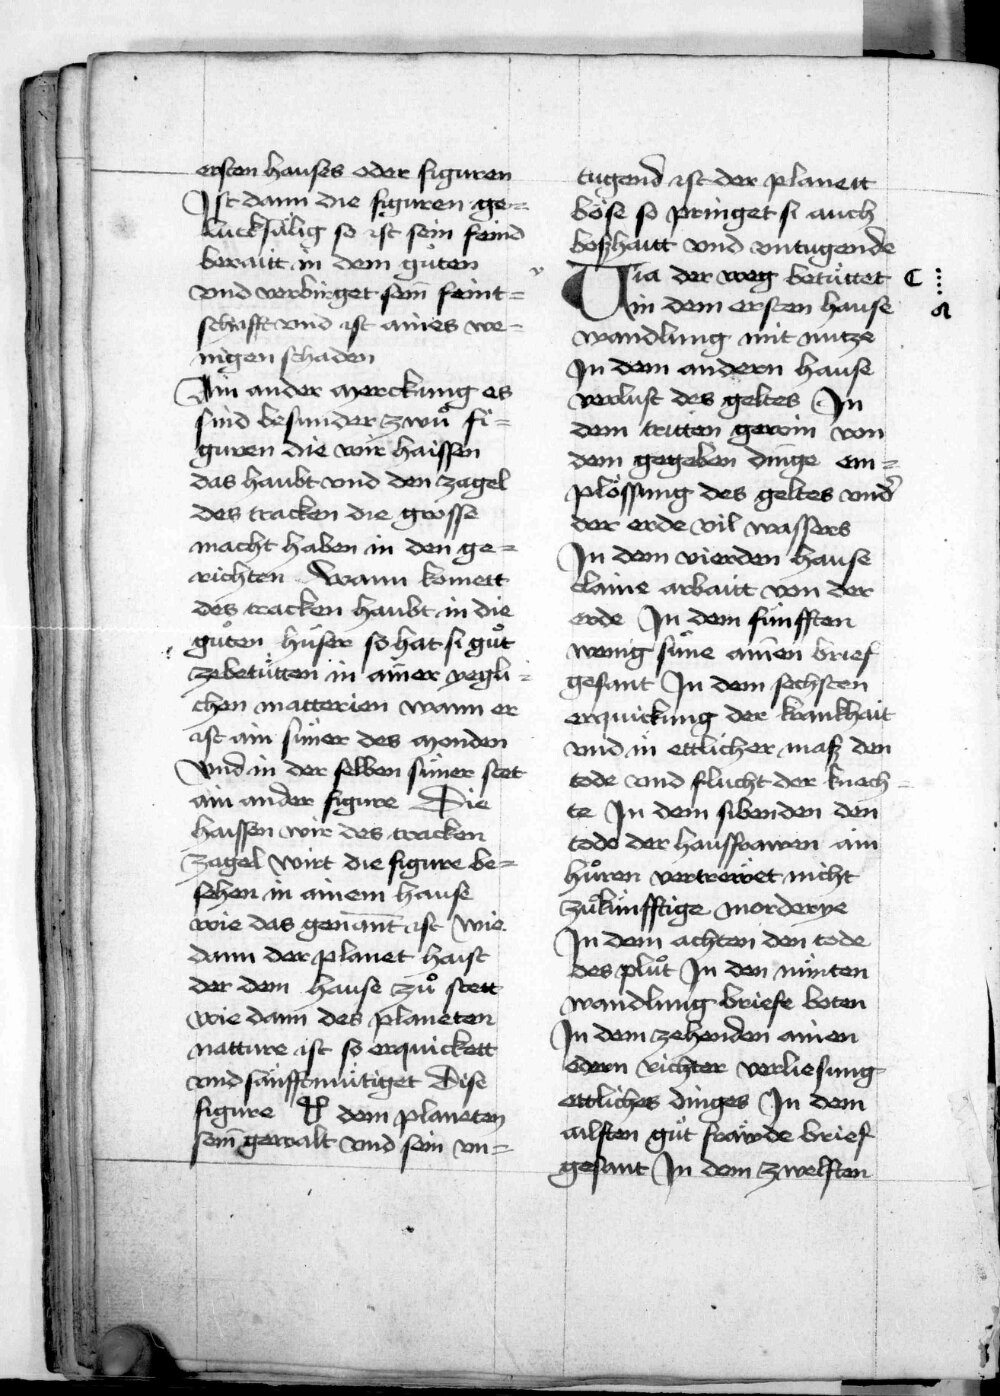 ersten hauses oder figuren
Ist dann die figuren ge=
lucksälig so ist sein feind
beraitt in dem gůten
vnd verbirget sein feint=
schafft vnd ist aines we=
nigen schaden
Ain ander merckung es
sind besunder zwů fi=
guren die wir haissen
das haubt vnd den zagel
des tracken die grosse
macht haben in den ge=
richten Wann komett
des tracken haubt in die
gůten hüser so hat si gůt
zebetütten in ainer yegli=
chen matterien wann er
ist ain süner des monden
Vnd in der selben süner stet
ain ander figure Die
haissen wir des tracken
zagel Wirt die figure be=
sehen in ainem hause
wie das genant ist Wie
dann der planet haist
der dem hause zů stett
wie dann des planeten
natture ist so erquickett
vnd säufftmütiget Dise
figure dem planeten
sein gewalt vnd sein vn=
tugend ist der planett
böse so pringet si auch
boßhaitt vnd vntugende
Uia der weg betüttet
in dem ersten hause
wandlung mit nutze
In dem andern hause
verlust des geltes In
dem tritten gewin von
dem gegeben dinge em=
plössung des geltes vnd
der erde vil wassers
In dem vierden hause
claine arbaitt von der
erde In dem fünfften
wenig süne ainen brief
gesant In dem sechsten
erquickung der kranckhait
vnd in ettlicher maß den
tode vnd flucht der knech=
te In dem sibenden den
tode der haussfrawen ain
hůren vertrewet nicht
zůkünfftige morderye
In dem achten den tode
des plůt In den nünten
wandlung briefe boten
In dem zehenden ainen
edern richter verliesung
ettliches dinges In dem
ailften gůt fräwde brief
gesant In dem zwelften